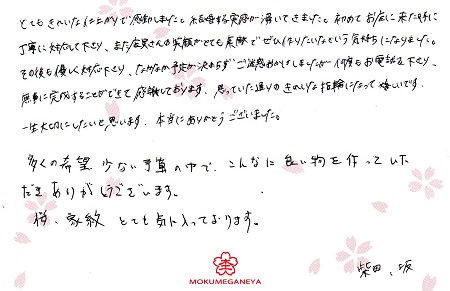 とてもきれいな仕上がりで感動しました。結婚する実感が湧いてきました。初めてお店に来た時に
丁寧に対応して下さり、また店員さんの笑顔がとても素敵でぜひ作りたいなという気持ちになりました。
その後も優しく対応下さり、なかなか予定が決まらずご迷惑おかけしましたが何度もお電話を下さり、
無事に完成することができて感謝しております。思っていた通りのきれいな指輪になって嬉しいです。
一生大切にしたいと思います。本当にありがとうございました。
多くの希望 少ない予算の中で、こんなに良い物を作っていた
だきありがとうございます。
桜、家紋 とても気に入っております。
柴田、坂
MOKUMEGANEYA